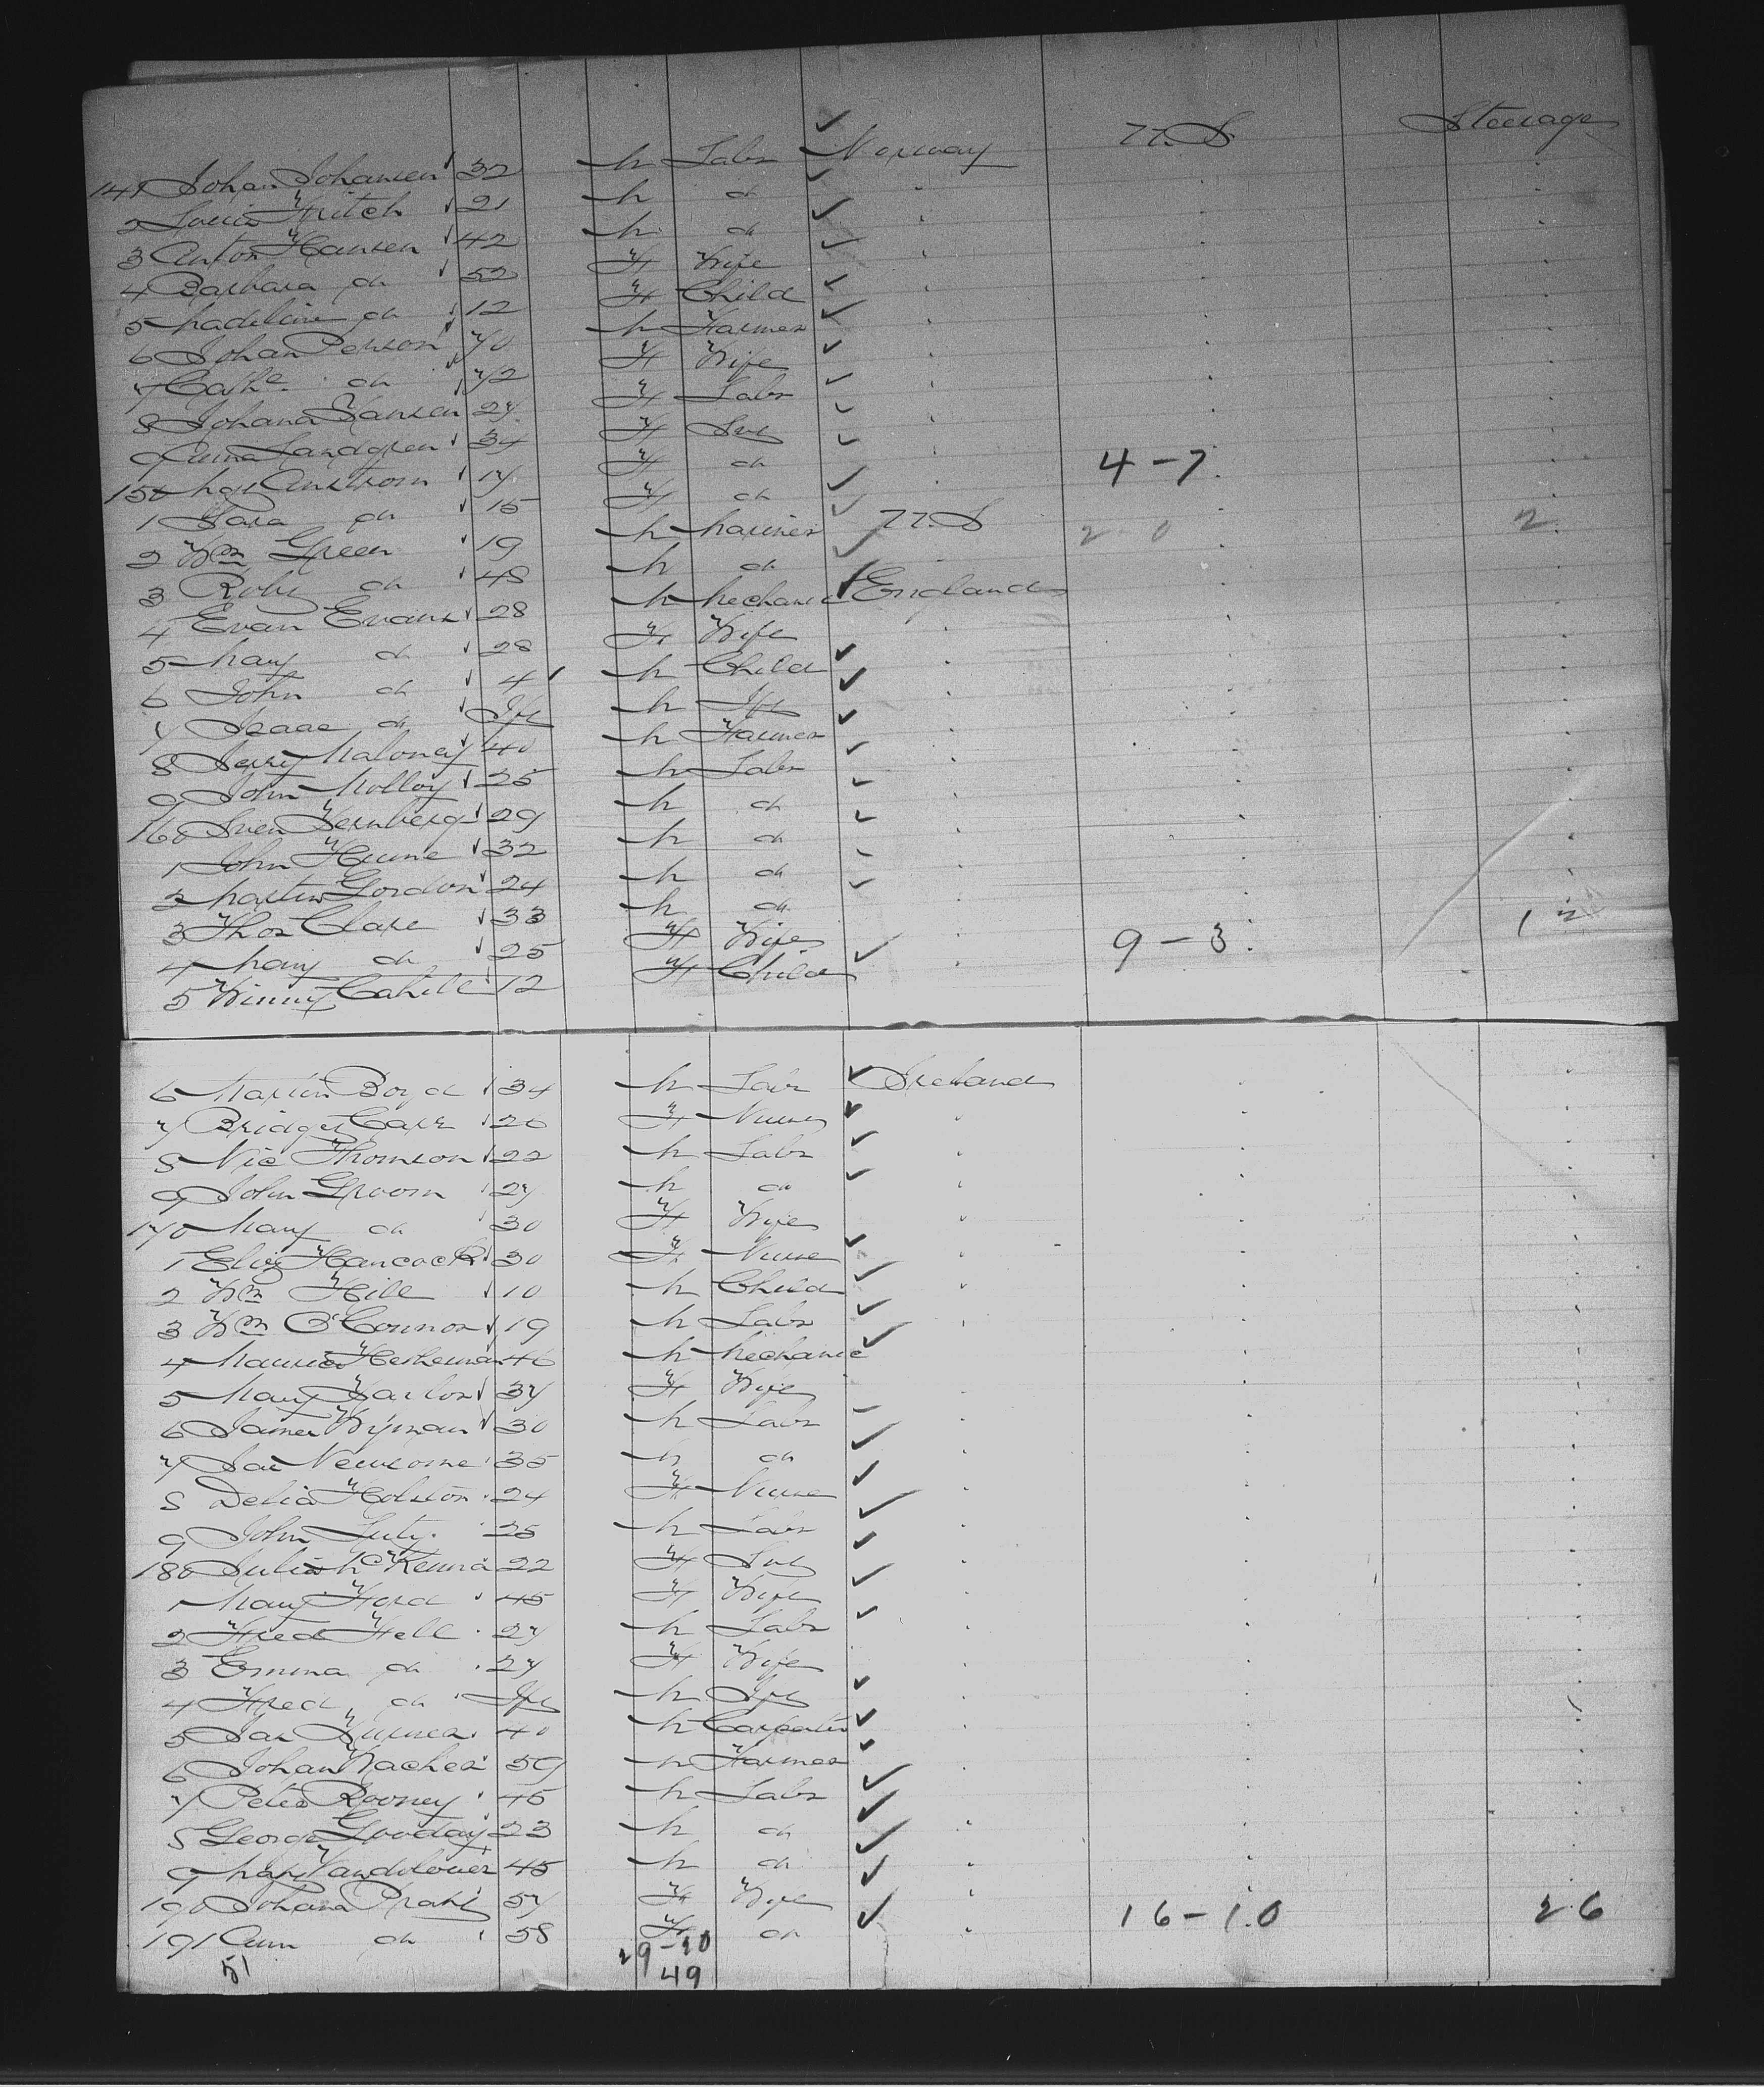 141 Johan Johansen 32 M Labr Norway U.S Steerage
2 Louis Fritch 21 M do
3 Anton Hansen 42 M do
4 Barbara do 52 F Wife
5 Madeline do 12 F Child
6 Johan Person 70 M Farmer
7 Cathe do 72 F Wife
8 Johana Hansen 27 F Labr
9 Anna Landgren 34 F Svt
150 17 F do 4-7
1 Sara do 15 F do
2 Wm Green 19 M Mariner U.S 2-0 2
3 Robt do 48 M do
4 Evan Evans 28 M Mechanic England
5 Mary do 28 F Wife
6 John do 4 M Child
7 Isaac do Inft M Inft
8 Jerry Maloney 40 M Farmer
9 John Molloy 25 M Labr
160 Sven Ternberg 29 M do
1 John Hume 32 M do
2 Martin Gordon 24 M do
3 Thos Clare 33 M do
4 Mary do 25 F Wife 9-3 12
5 Winny Cahill 12 F Child
6 Martin Boyd 34 M Labr Ireland
7 Bridget Carr 26 F Nurse
8 Nic Thomson 22 M Labr
9 John Groom 27 M do
170 Mary do 30 F Wife
1 Eliz Hancock 30 F Nurse
2 Wm Hill 10 M Child
3 Wm O'Connor 19 M Labr
4 Maurice 46 M Mechanic
5 Mary 37 F Wife
6 James Wyman 30 M Labr
7 Jas Newsome 35 M do
8 Delia Holston 24 F Nurse
9 John 25 M Labr
180 Julia McKenna 22 F Svt
1 Mary Ford 45 F Wife
2 Fred Fell 27 M Labr
3 Emma do 27 F Wife
4 Fred do Inft M Inft
5 Jas Turner 40 M Carpenter
6 Johan Wacher 59 M Farmer
7 Peter Rooney 45 M Labr
8 George Gooday 23 M do
9 45 M do
190 Johana 57 F Wife 16-10 26
191 Ann do 58 F do
51 29-20
49